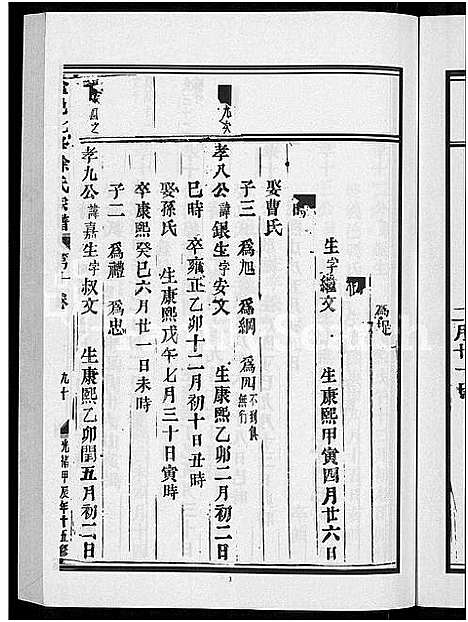 為
生字繼文 生康熙甲寅四月廿六日
時
娶曹氏
子三 為旭 為綱 為四不到俱無行
孝八公諱銀生字安文 生康熙乙卯二月初二日
巳時 卒雍正乙卯十二月初十日丑時
娶孫氏 生康熙戊午七月三十日寅時
卒康熙癸巳六月廿一日未時
子二 為禮 為忠
孝九公諱嘉生字叔文 生康熙乙卯閏五月初二日
余氏宗譜 卷 九十 光緒甲辰年十五修